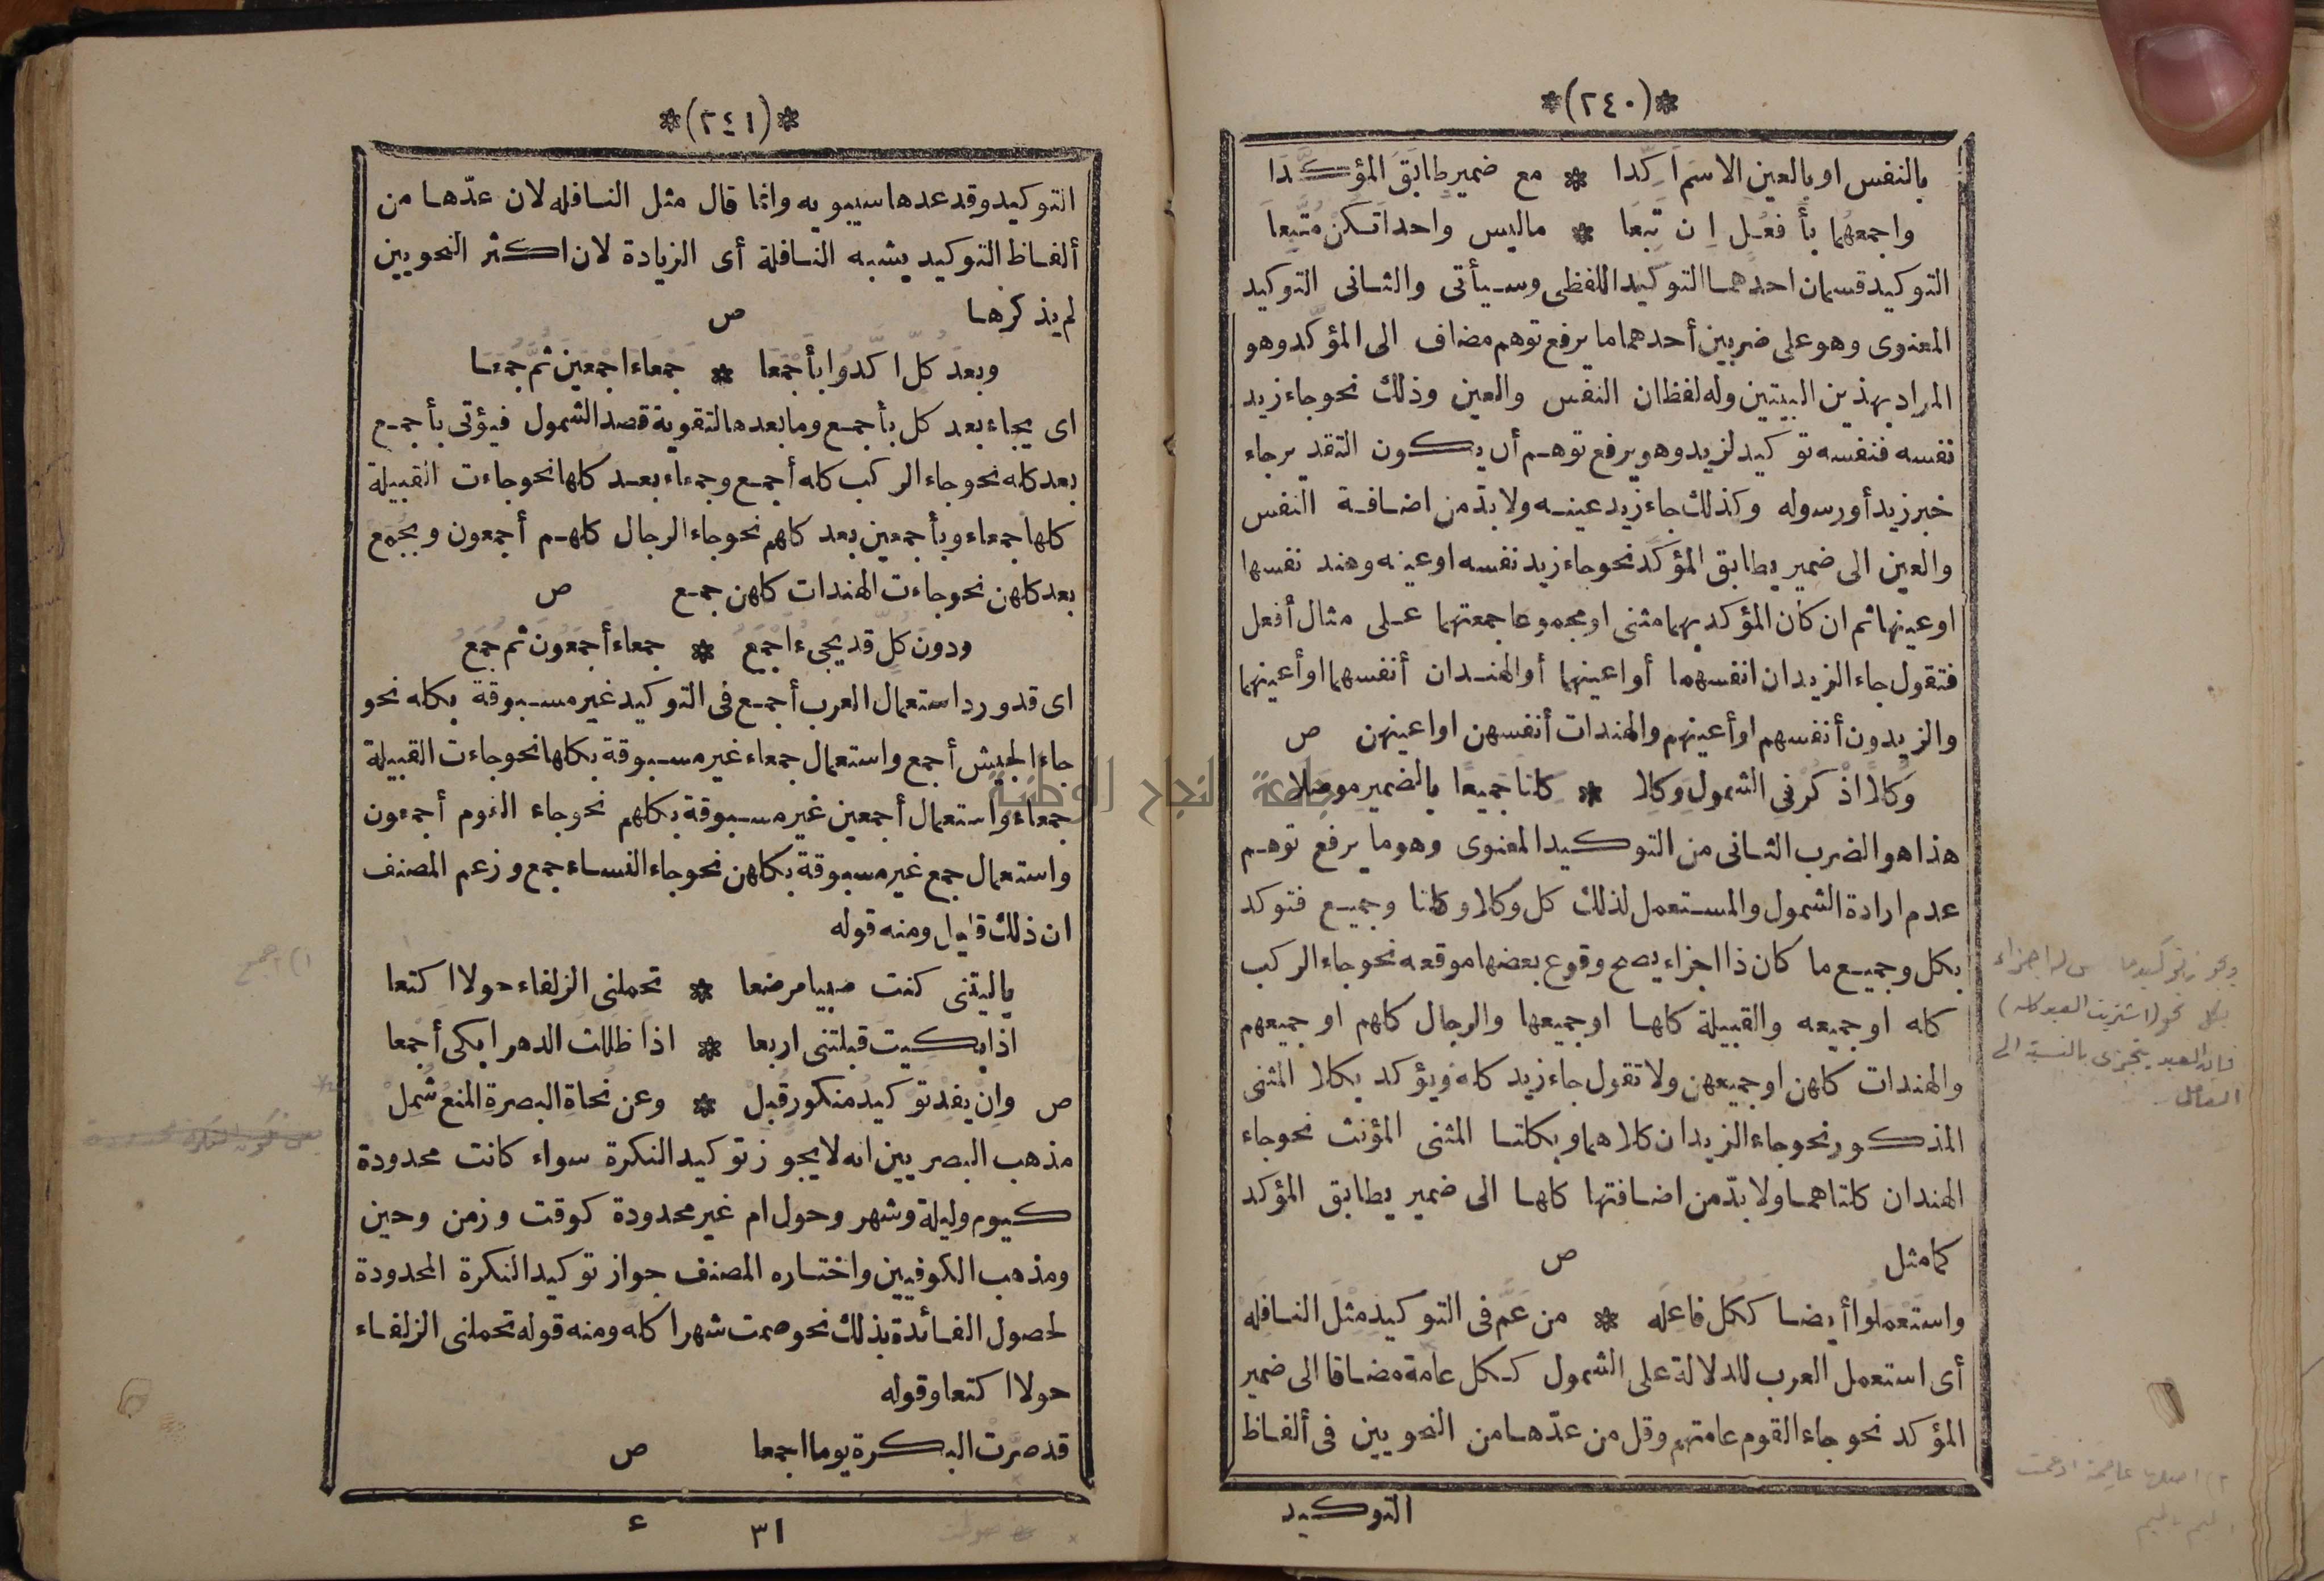 *(٢٤٠)*
بالنفس او بالعين الاسمَ أكِّدا * مع ضميرٍ طابَقَ المؤكَّدَا
واجمعهُما بأَفعُلٍ اِن تَبِعَا * ماليس واحدا تكن مُتَّبِعاَ
التوكيد قسمان احدهما التوكيد اللفظى وسيأتى والثانى التوكيد
المعنوى وهو على ضربين أحدهما ما يرفع توهم مضاف الى المؤكَّد وهو
المراد بهذين البيتين وله لفظان النفس والعين وذلك نحو جاء زيد
نفسه فنفسه توكيد لزيد وهو يرفع توهم أن يكون التقدير جاء
خبر زيد أو رسوله وكذلك جاء زيد عينه ولا بدّ من اضافة النفس
والعين الى ضمير يطابق المؤكَّد نحو جاء زيد نفسه او عينه وهند نفسها
او عينها ثم ان كان المؤكد بهما مثنى او مجموعا جمعتهما على مثال أفعل
فتقول جاء الزيدان انفسهما أو اعينهما أو الهندان أنفسهما او أعينهما
والزيدون أنفسهم او أعينهم والهندات أنفسهن او اعينهن ص
وَكلاًّ اذْكُرْ فى الشمولِ وَكِلا * كلتا جَميعًا بالضميرِ موصَلا
هذا هو الضرب الثانى من التوكيد المعنوى وهو ما يرفع توهم
عدم ارادة الشمول والمستعمل لذلك كل وكلا وكلتا وجميع فتوكد
بكل وجميع ما كان ذا اجزاء يصح وقوع بعضها موقعه نحو جاء الركب
كله او جميعه والقبيلة كلها او جميعها والرجال كلهم او جميعهم
والهندات كلهن او جميعهن ولا تقول جاء زيد كله ويؤكد بكلا المثنى
المذكور نحو جاء الزيدان كلاهما وبكلتا المثنى المؤنث نحو جاء
الهندان كلتاهما ولا بدّ من اضافتها كلها الى ضمير يطابق المؤكد
كما مثل ص
واستَعملُوا أيضا كَكُل فاعِلَه * من عَمَّ فى التوكيدِ مثلَ النافلَه
أى استعمل العرب للدلالة على الشمول ككل عامة مضافا الى ضمير
المؤكد نحو جاء القوم عامتهم وقل من عدّها من النحويين فى ألفاظ
التوكيد
ويجوز توكيد ما له اجزاء
بكل نحو (اشتريت العبد كله)
فان العبد يتجزى بالنسبة الى
العامل
*(٢٤١)*
التوكيد وقد عدها سيبويه وانما قال مثل النافله لان عدّها من
ألفاظ التوكيد يشبه النافلة أى الزيادة لان اكثر النحويين
لم يذكرها ص
وبعدَ كلّ اكَّدُوا بأَجْمَعَا * جَمْعَاءَ اجْمَعينَ ثمَّ جُمَعَا
اى يجاء بعد كل بأجمع وما بعدها لتقوية قصد الشمول فيؤتى بأجمع
بعد كله نحو جاء الركب كله أجمع وجمعاء بعد كلها نحو جاءت القبيلة
كلها جمعاء وبأجمعين بعد كلهم نحو جاء الرجال كلهم أجمعون وبجُمَع
بعد كلهن نحو جاءت الهندات كلهن جمع ص
ودونَ كلِّ قد يَجىءُ اجْمَعُ * جمعاءُ أجمَعُونَ ثم جُمَعُ
اى قد ورد استعمال العرب أجمع فى التوكيد غير مسبوقة بكله نحو
جاء الجيش أجمع واستعمال جمعاء غير مسبوقة بكلها نحو جاءت القبيلة
جمعاء واستعمال أجمعين غير مسبوقة بكلهم نحو جاء القوم أجمعون
واستعمال جمع غير مسبوقة بكلهن نحو جاء النساء جمع وزعم المصنف
ان ذلك قليل ومنه قوله
ياليتنى كنت صبيا مرضعا * تحملنى الزلفاء حولا اكتعا
اذا بكيت قبلتنى اربعا * اذا ظللت الدهر ابكى أجمعا
ص وإنْ يفِدْ توكيدُ منكورٍ قُبِلْ * وعن نُحاةِ البصرةِ المنعُ شُمِلْ
مذهب البصريين انه لا يجوز توكيد النكرة سواء كانت محدودة
كيوم وليلة وشهر وحول ام غير محدودة كوقت وزمن وحين
ومذهب الكوفيين واختاره المصنف جواز توكيد النكرة المحدودة
لحصول الفائدة بذلك نحو صمت شهرا كله ومنه قوله تحملنى الزلفاء
حولا اكتعا وقوله
قد صرّت البكرة يوما اجمعا ص
٣١ ع
جامعة النجاح الوطنية